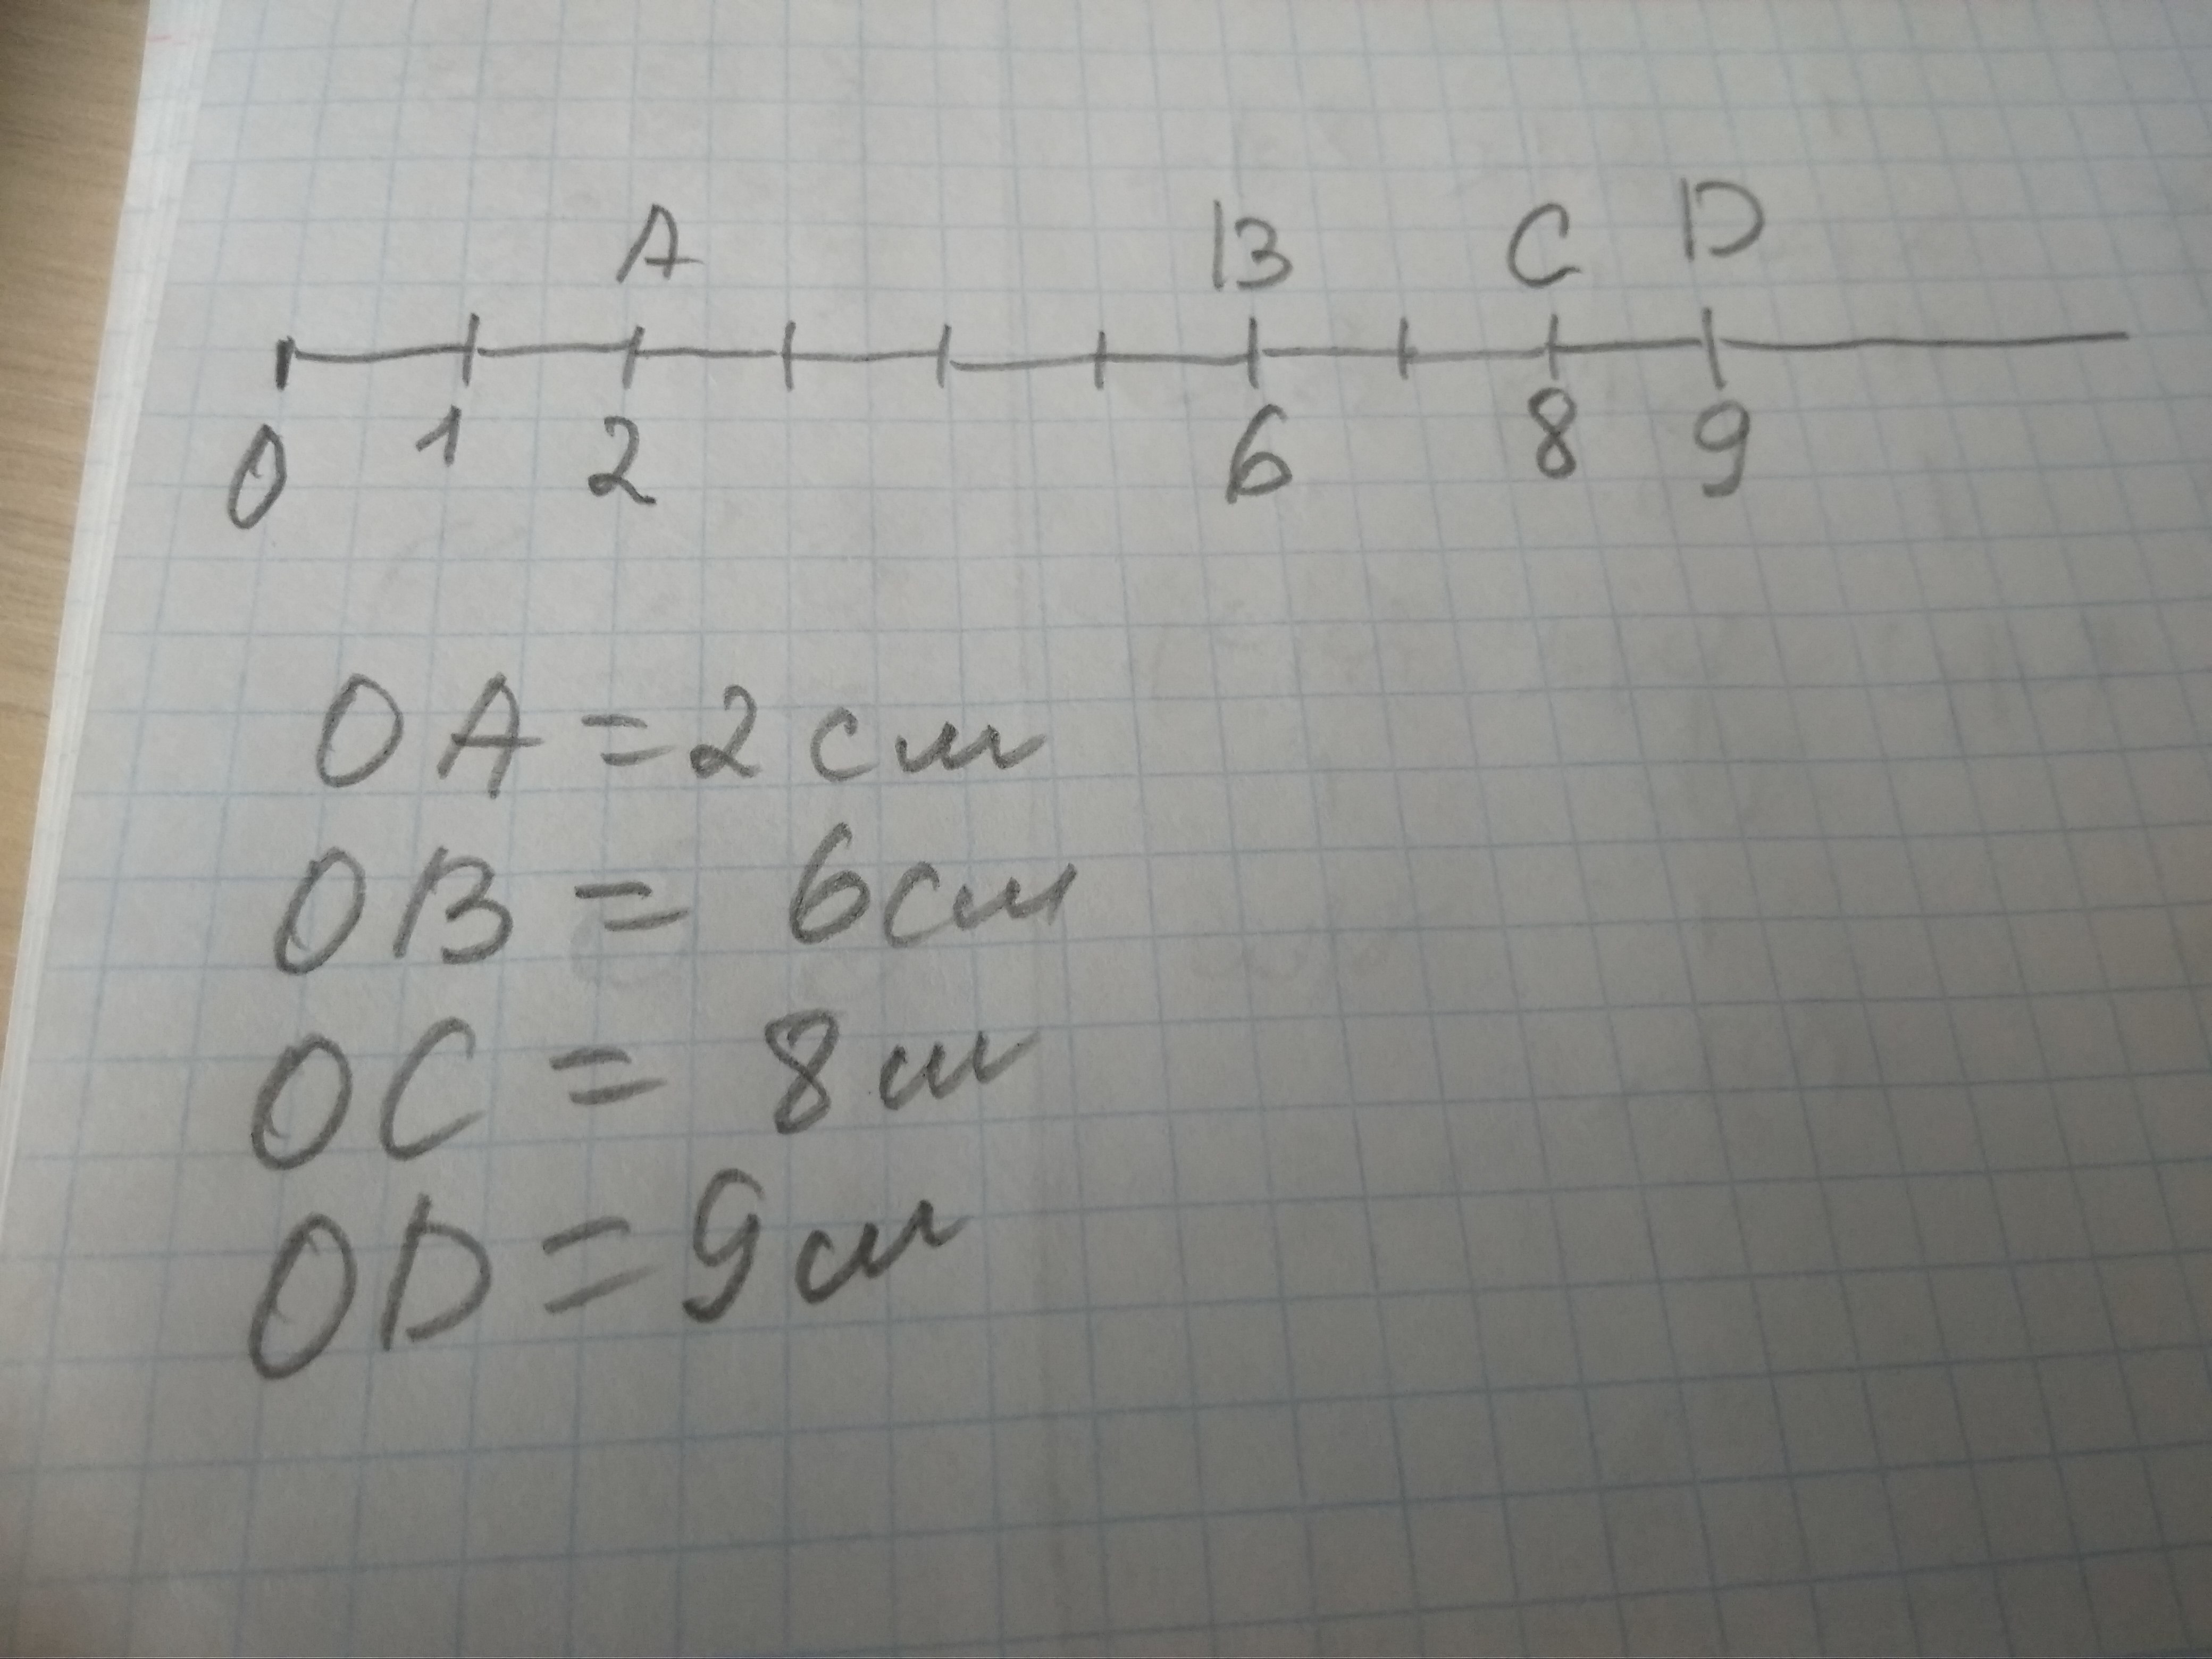 A B C D
0 1 2 6 8 9
OA = 2 см
OB = 6 см
OC = 8 см
OD = 9 см